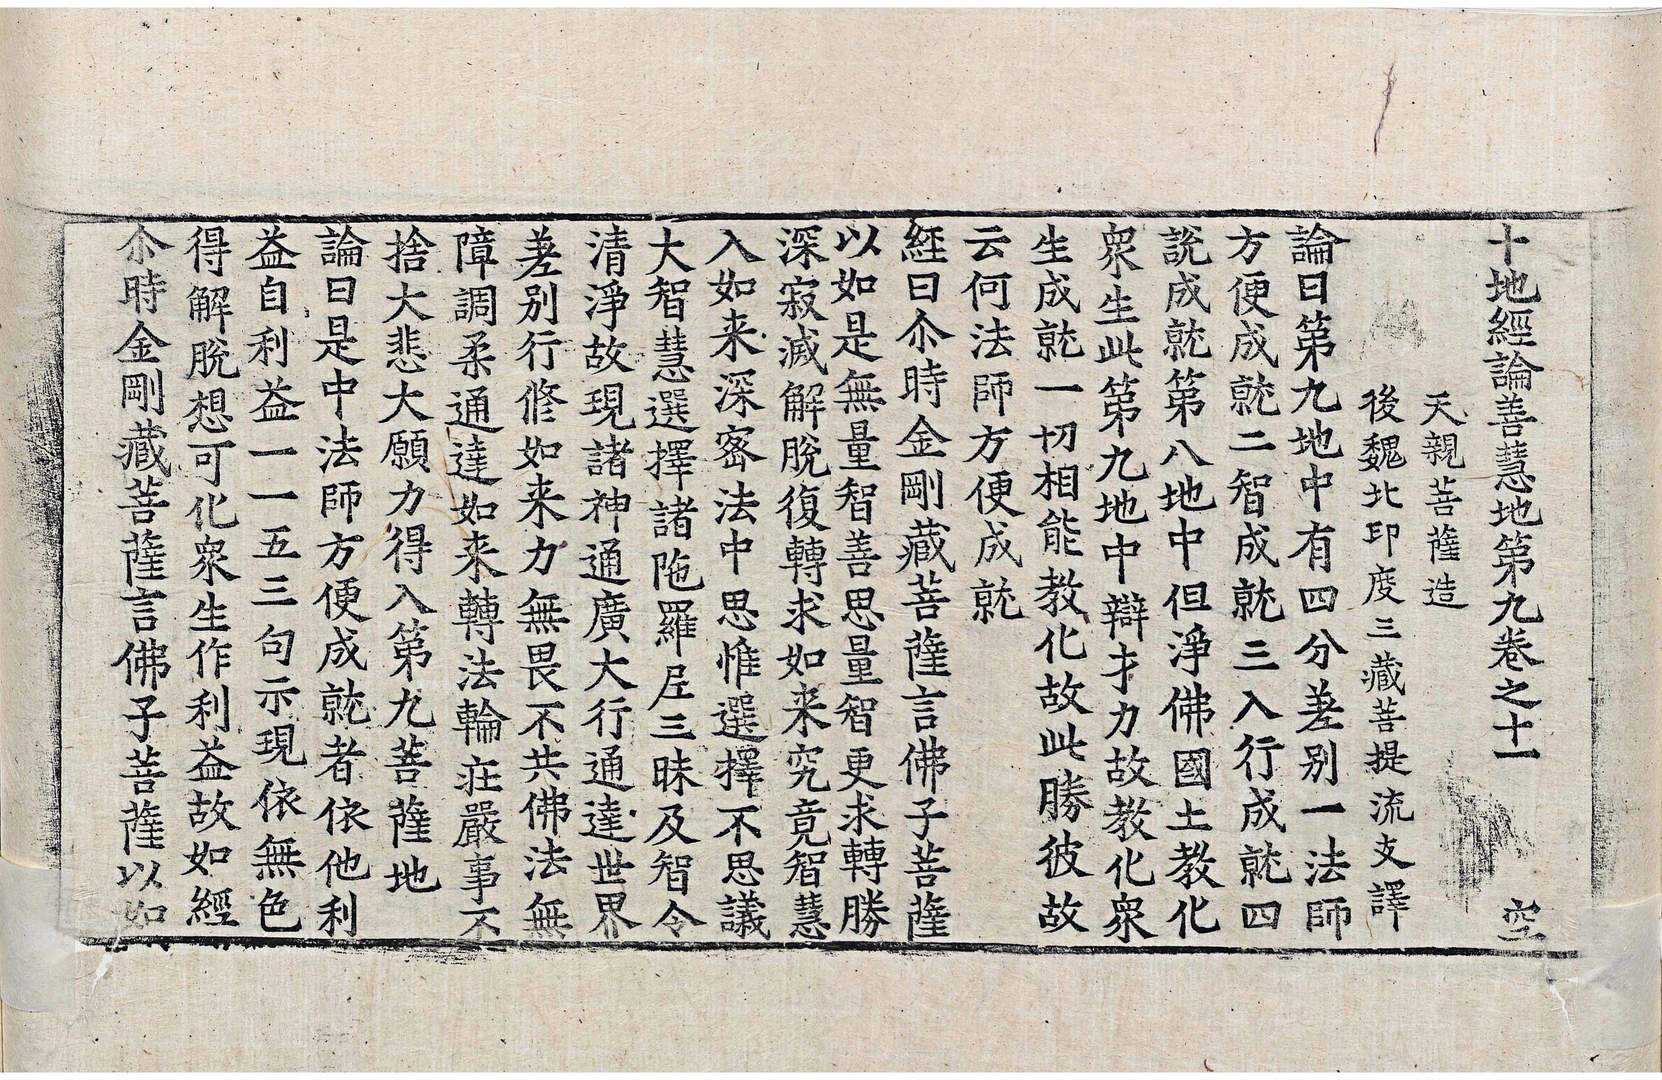 十地經論善慧地第九卷之十一　空
天親菩薩造
後魏北印度三藏菩提流支譯
論曰第九地中有四分差別一法師
方便成就二智成就三入行成就四
說成就第八地中但淨佛國土教化
衆生此第九地中辯才力故教化衆
生成就一切相能教化故此勝彼故
云何法師方便成就
経曰尒時金剛藏菩薩言佛子菩薩
以如是無量智善思量智更求轉勝
深寂滅解脫復轉求如来究竟智慧
入如来深密法中思惟選擇不思議
大智慧選擇諸陁羅尼三昧及智令
清淨故現諸神通廣大行通達世界
差别行修如来力無畏不共佛法無
障調柔通達如来轉法輪庄嚴事不
捨大悲大願力得入第九菩薩地
論曰是中法師方便成就者依他利
益自利益一一五三句示現依無色
得解脫想可化衆生作利益故如經
尒時金剛藏菩薩言佛子菩薩以如